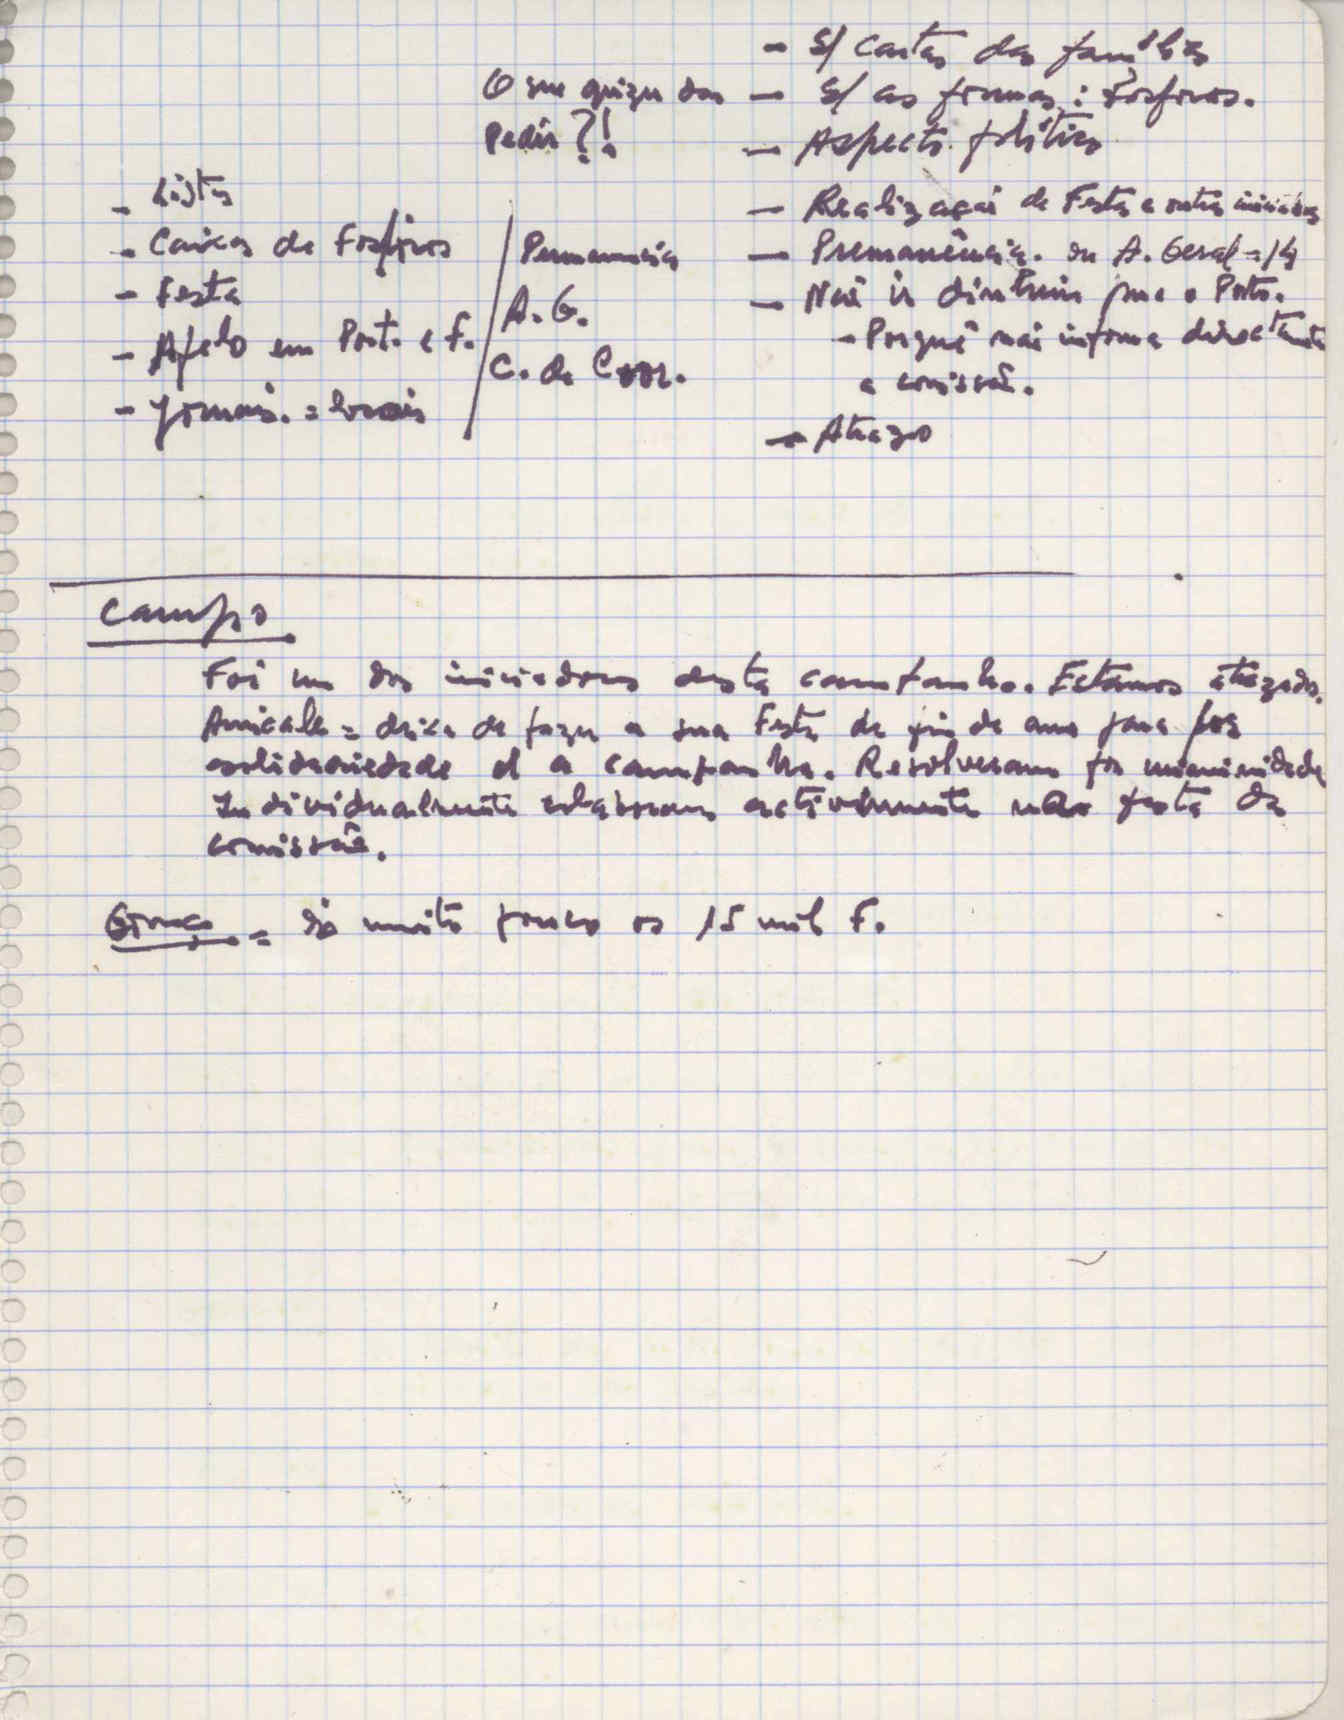 - S/ Cartas das famílias
O que quizer dar
- S/ as formas: Fósforos.
Pedir?!
- Aspecto político
- Listas
- Realização de Festa e outras iniciativas
- Caixas de Fósforos
Permanencia
- Premanência. ou A. Geral = 14
- Festa
A. G.
- Não ir dinheiro para o Porto.
- Apelo em Port. e F.
- Porquê não informa directamente
C. de Corr.
a comissão.
- Jornais. = locais
- Atrazo
Campo
Foi um dos iniciadores desta campanha. Estamos atrazados.
Amicale = deixa de fazer a sua Festa de fim de ano para por
solidariedade a campanha. Resolveram por unanimidade
Individualmente colaboram activamente na festa da
comissão.
= é muito pouco os 15 mil F.